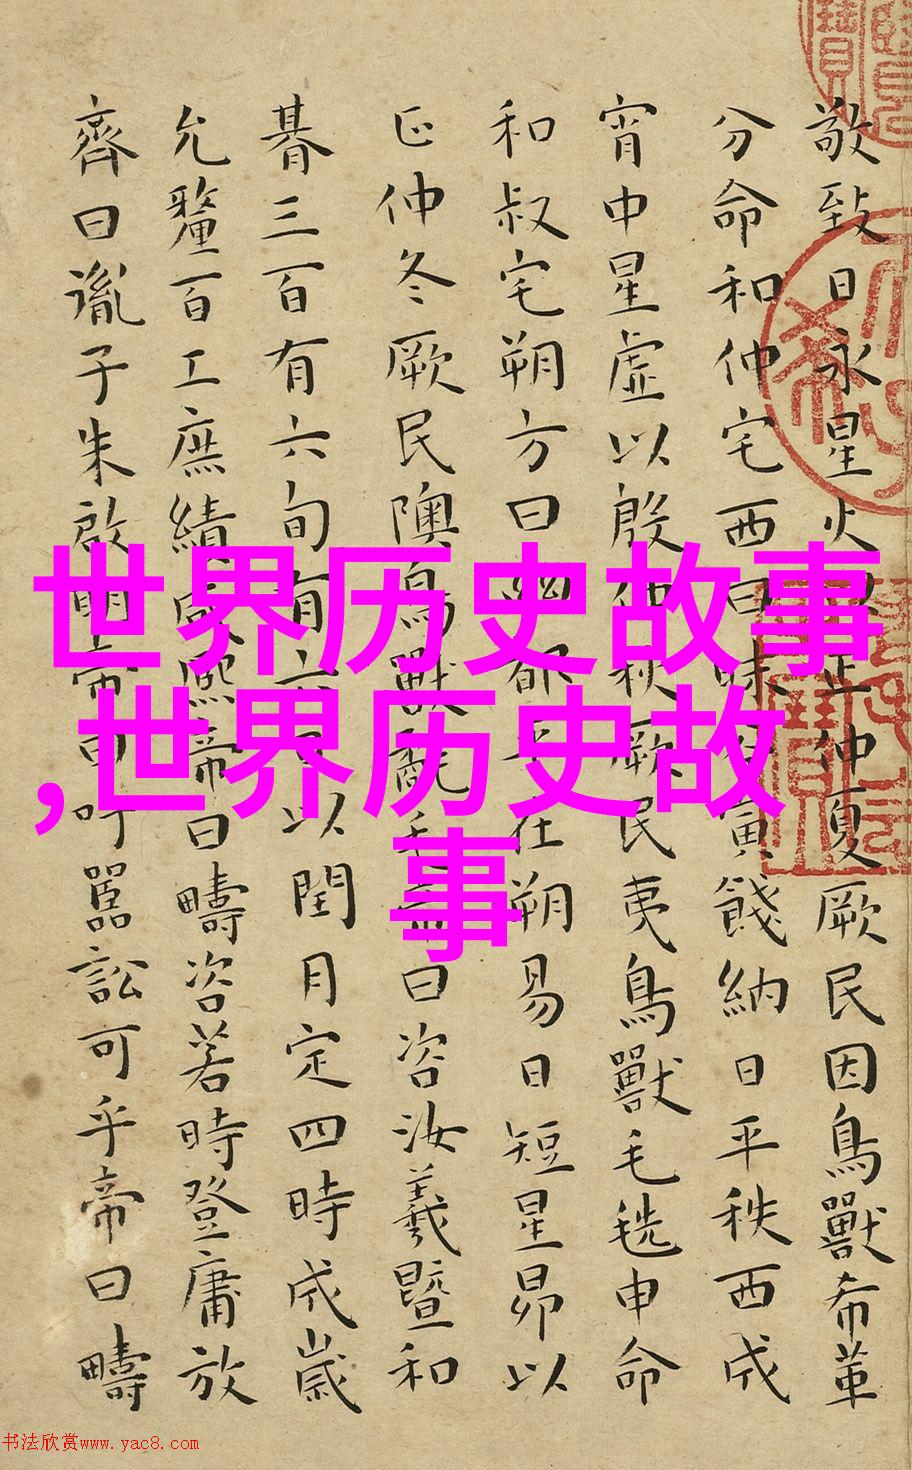 敬致日永星火以正仲夏厥民因鳥獸希革
分命和仲宅西曰昧谷寅餞納日平秩西成
宵中星虛以殷仲秋厥民夷鳥獸毛毨申命
和叔宅朔方曰幽都平在朔易日短星昴以
正仲冬厥民隩鳥獸氄毛帝曰咨汝羲暨和
朞三百有六旬有六日以閏月定四時成歲
允釐百工庶績咸熙帝曰疇咨若時登庸放
齊曰胤子朱啟明帝曰吁嚚訟可乎帝曰疇
世界历史故事
,世界历史故
事
书法欣赏www.yac8.com